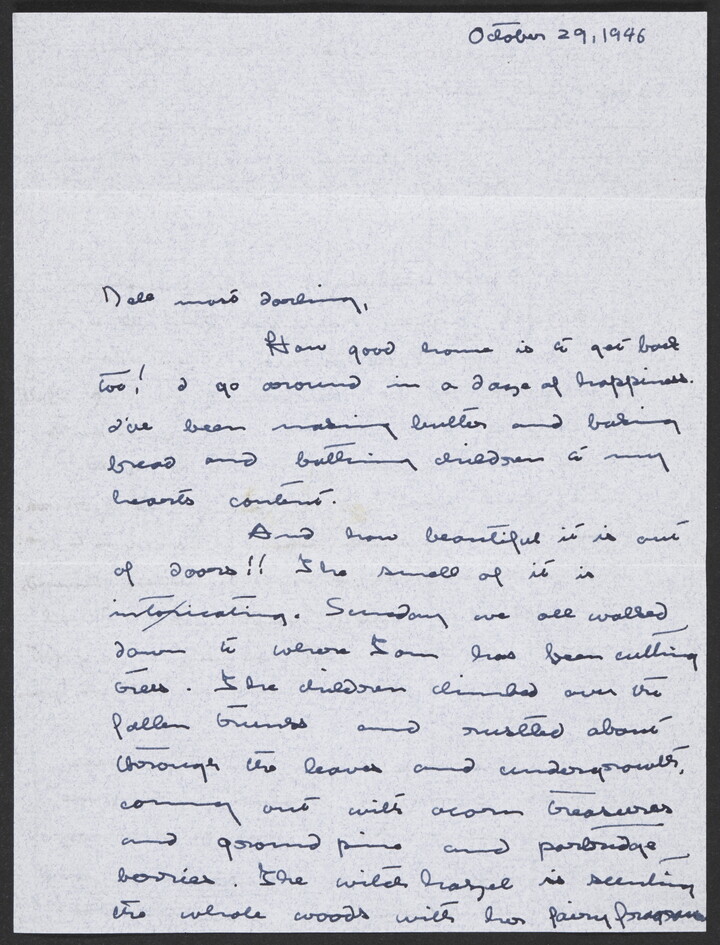 October 29, 1946
Dell most darling,
How good home is to get back
too! I go around in a daze of happiness.
I've been making butter and baking
bread and bathing children to my
hearts content.
And how beautiful it is out
of doors!! The smell of it is
intoxicating. Sunday we all walked
down to where Tom has been cutting
trees. The children climbed over the
fallen trunks and rustled about
through the leaves and undergrowth,
coming out with acorn treasures
and ground pine and partridge
berries. The witch hazel is scenting
the whole woods with her fairy fragrance